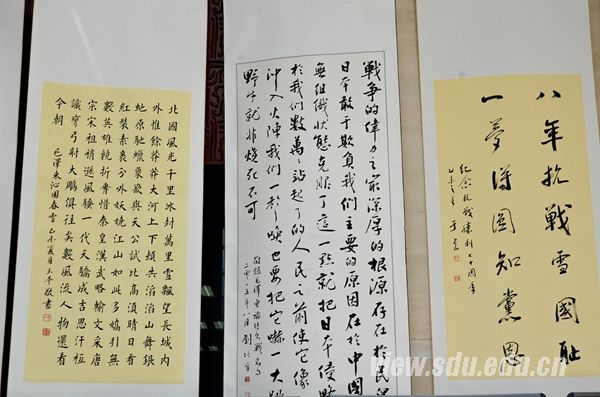 北國風光千里冰封萬里雪飄望長城內
外惟餘莽莽大河上下頓失滔滔山舞銀
蛇原馳蠟象欲與天公試比高須晴日看
紅裝素裹分外妖嬈江山如此多嬌引無
數英雄競折腰惜秦皇漢武略輸文采唐
宗宋祖稍遜風騷一代天驕成吉思汗秖
識彎弓射大鵰俱往矣數風流人物還看
今朝
毛澤東沁園春雪乙未夏月王本敬書
戰爭的偉力之最深厚的根源存在於民
日本敢于欺負我們主要的原因在於中國
無組織狀態克服了這一點就把日本侵略
於我們數萬萬站起了的人民之前使它像
沖入火陣我們一聲喚也要把它嚇一大跳
野牛就非燒死不可
敬錄毛澤東論持久戰名句
二〇一五年八月劉
八年抗戰雪國恥
一夢得圓知黨恩
紀念抗戰勝利七十週年
乙未
www.sdu.edu.cn